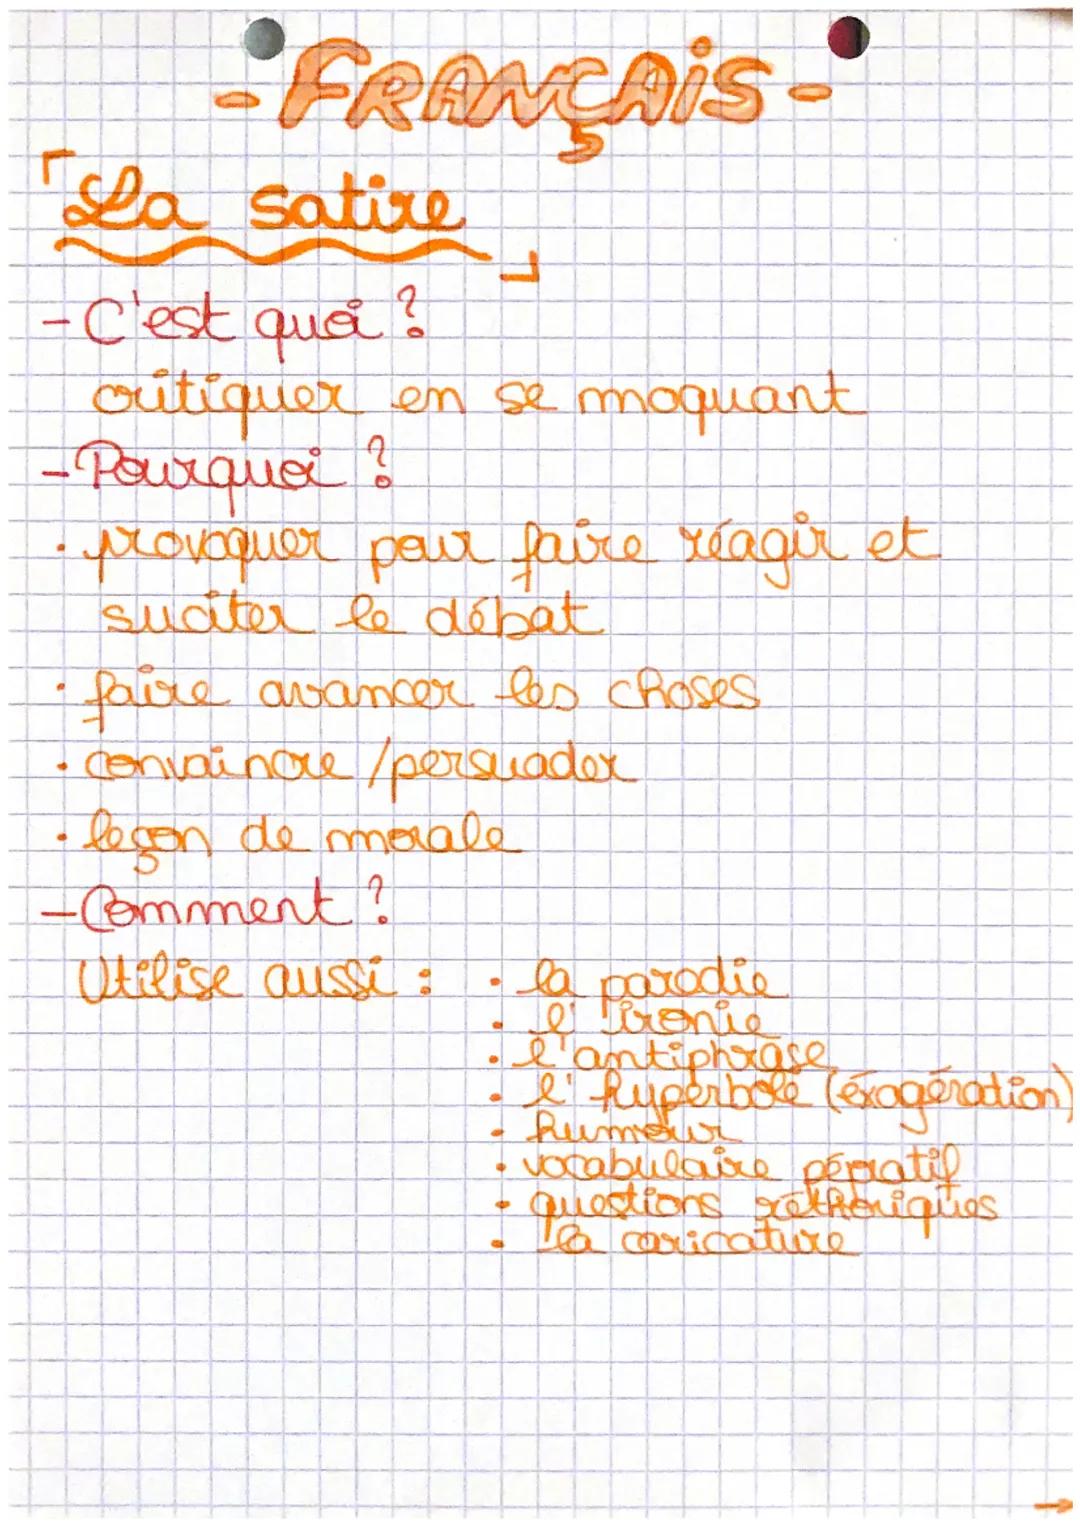 - FRANÇAIS -
「La satire」
- C'est quoi ?
critiquer en se moquant
- Pourquoi ?
· provoquer pour faire réagir et
suciter le débat
· faire avancer les choses
· convaincre / persuader
· leçon de morale
- Comment ?
Utilise aussi : · la parodie
· l'ironie
· l'antiphrase
· l'hyperbole (éxagération)
· humour
· vocabulaire péjoratif
· questions réthoriques
· la caricature
→